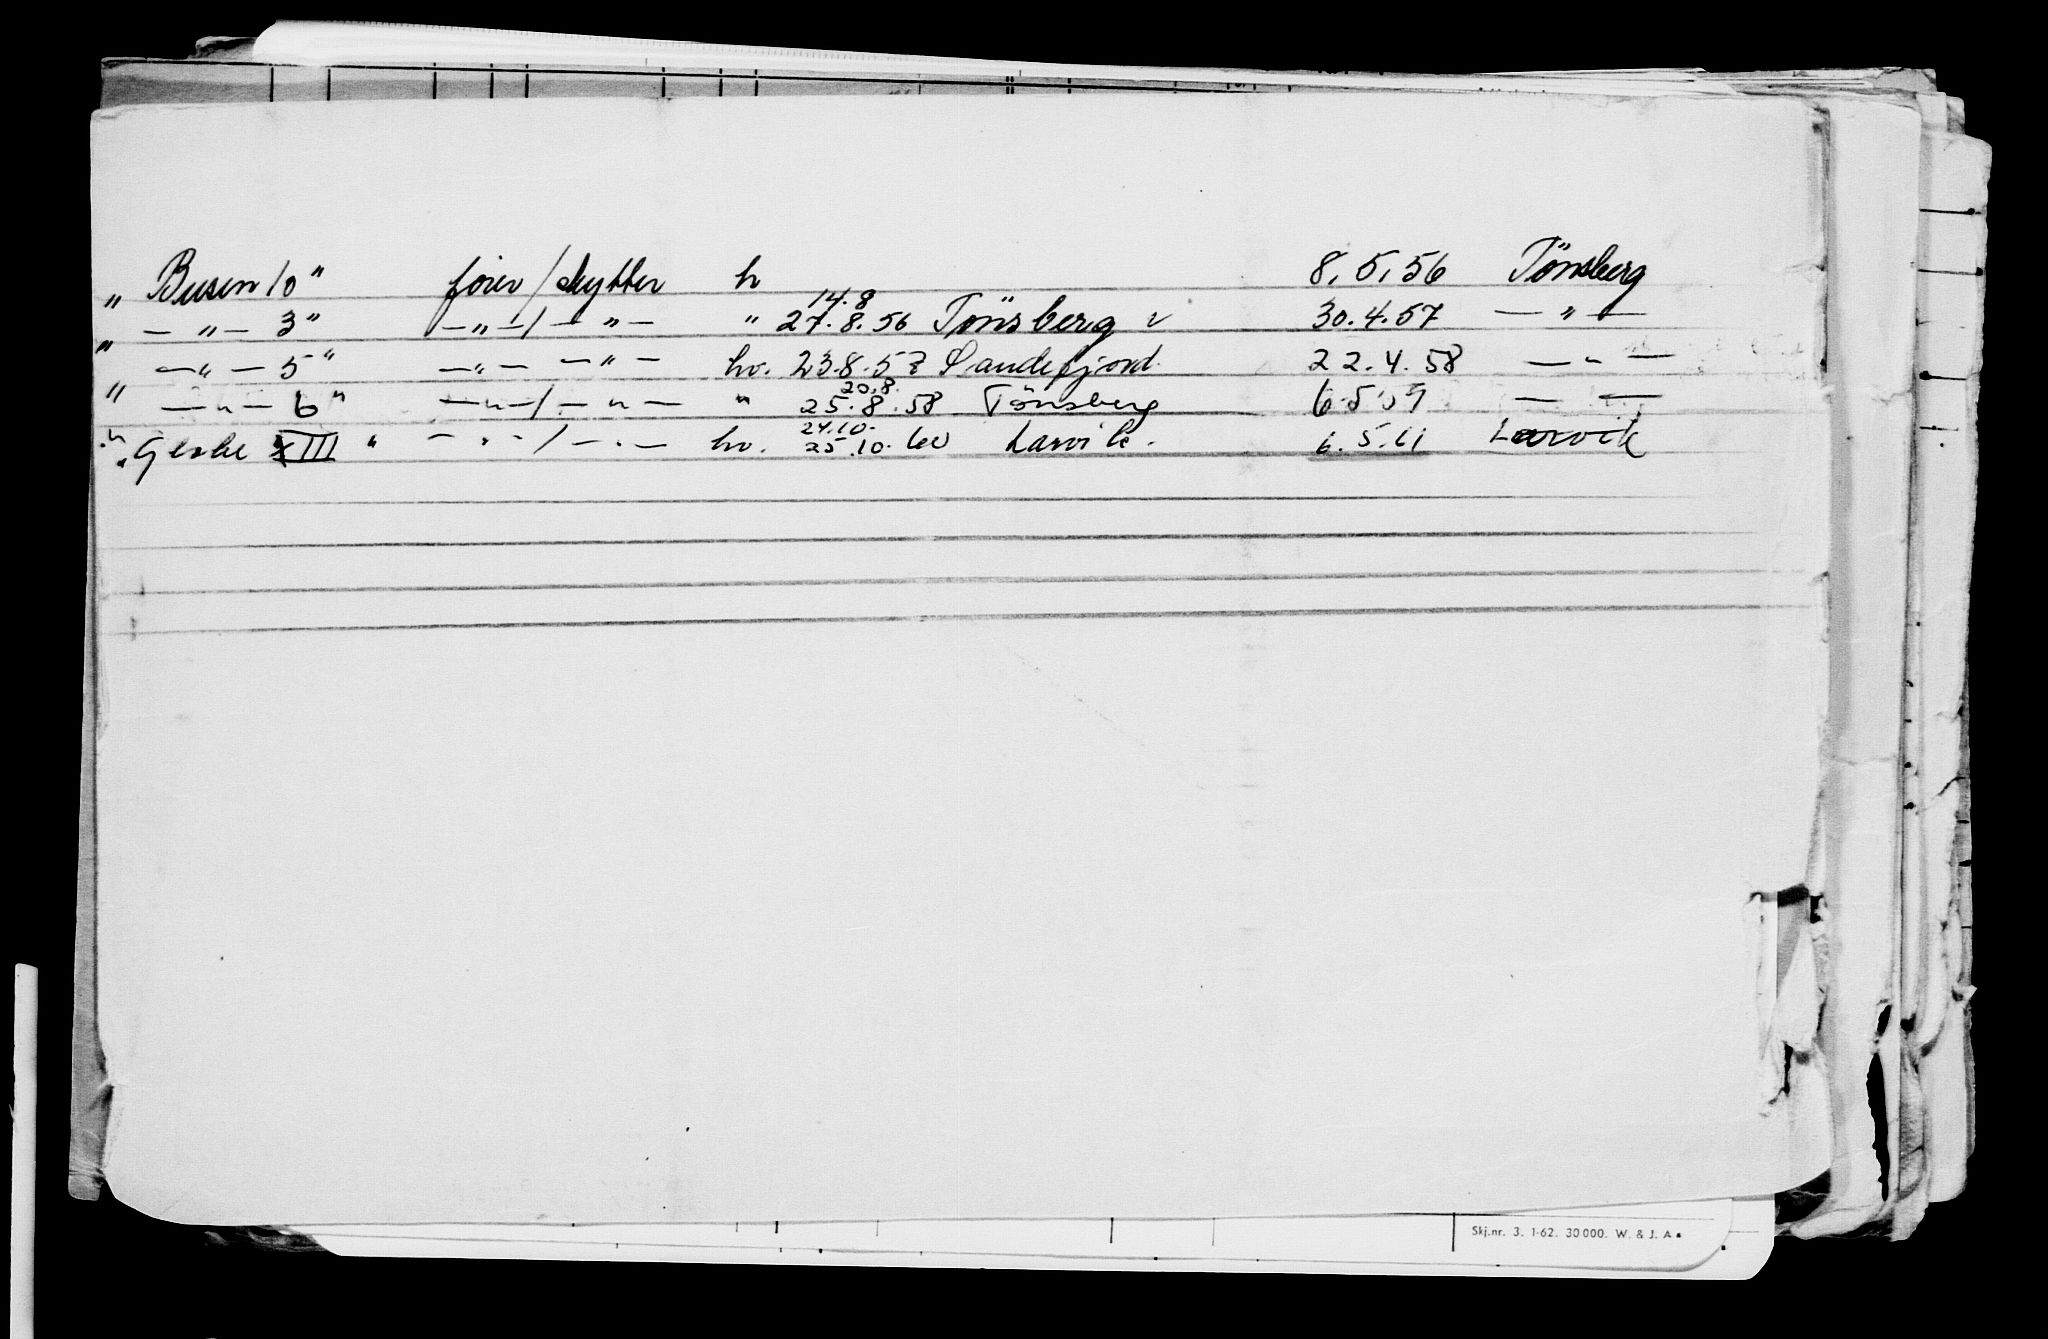 " Busen 10" fører/skytter h 8.5.56 Tønsberg
14.8
" — " — 3" — " — / — " — " 27.8.56 Tönsberg v 30.4.57 — " —
— " — 5" — " — — " — hv. 23.8.57 Sandefjord. 22.4.58 — " —
20.8.
" — " — 6" — " — / — " — " 25.8.58 Tönsberg 6.5.59 — —
24.10.
" XIII " — " — / — " — hv. 25.10.60 Larvik. 6.5.61 Larvik
Skj.nr. 3. 1-62. 30000. W. & J. A.